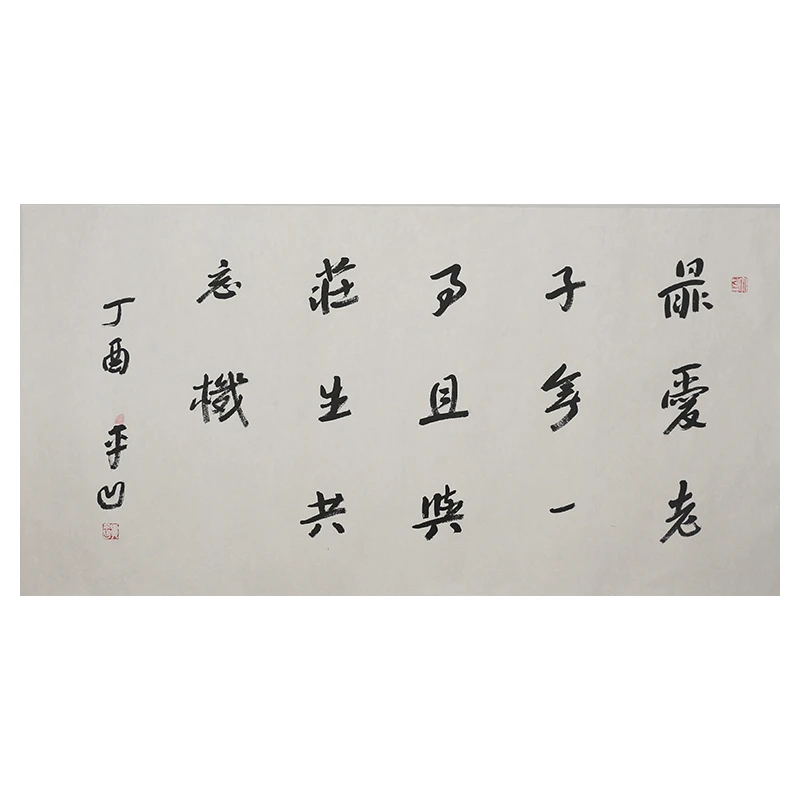 最愛老
子無一
事且與
莊生共
忘機
丁酉 平凹